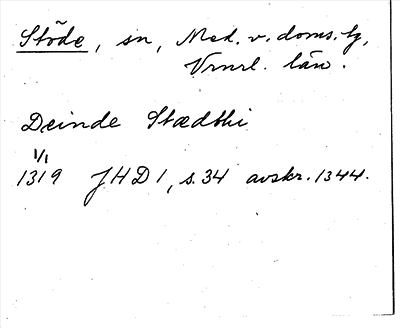 Stöde, sn, Med. v. doms. tg,
Vrnrl. län.
Deinde Stædthi
1/1
1319 JHD 1, s. 34 avskr. 1344.